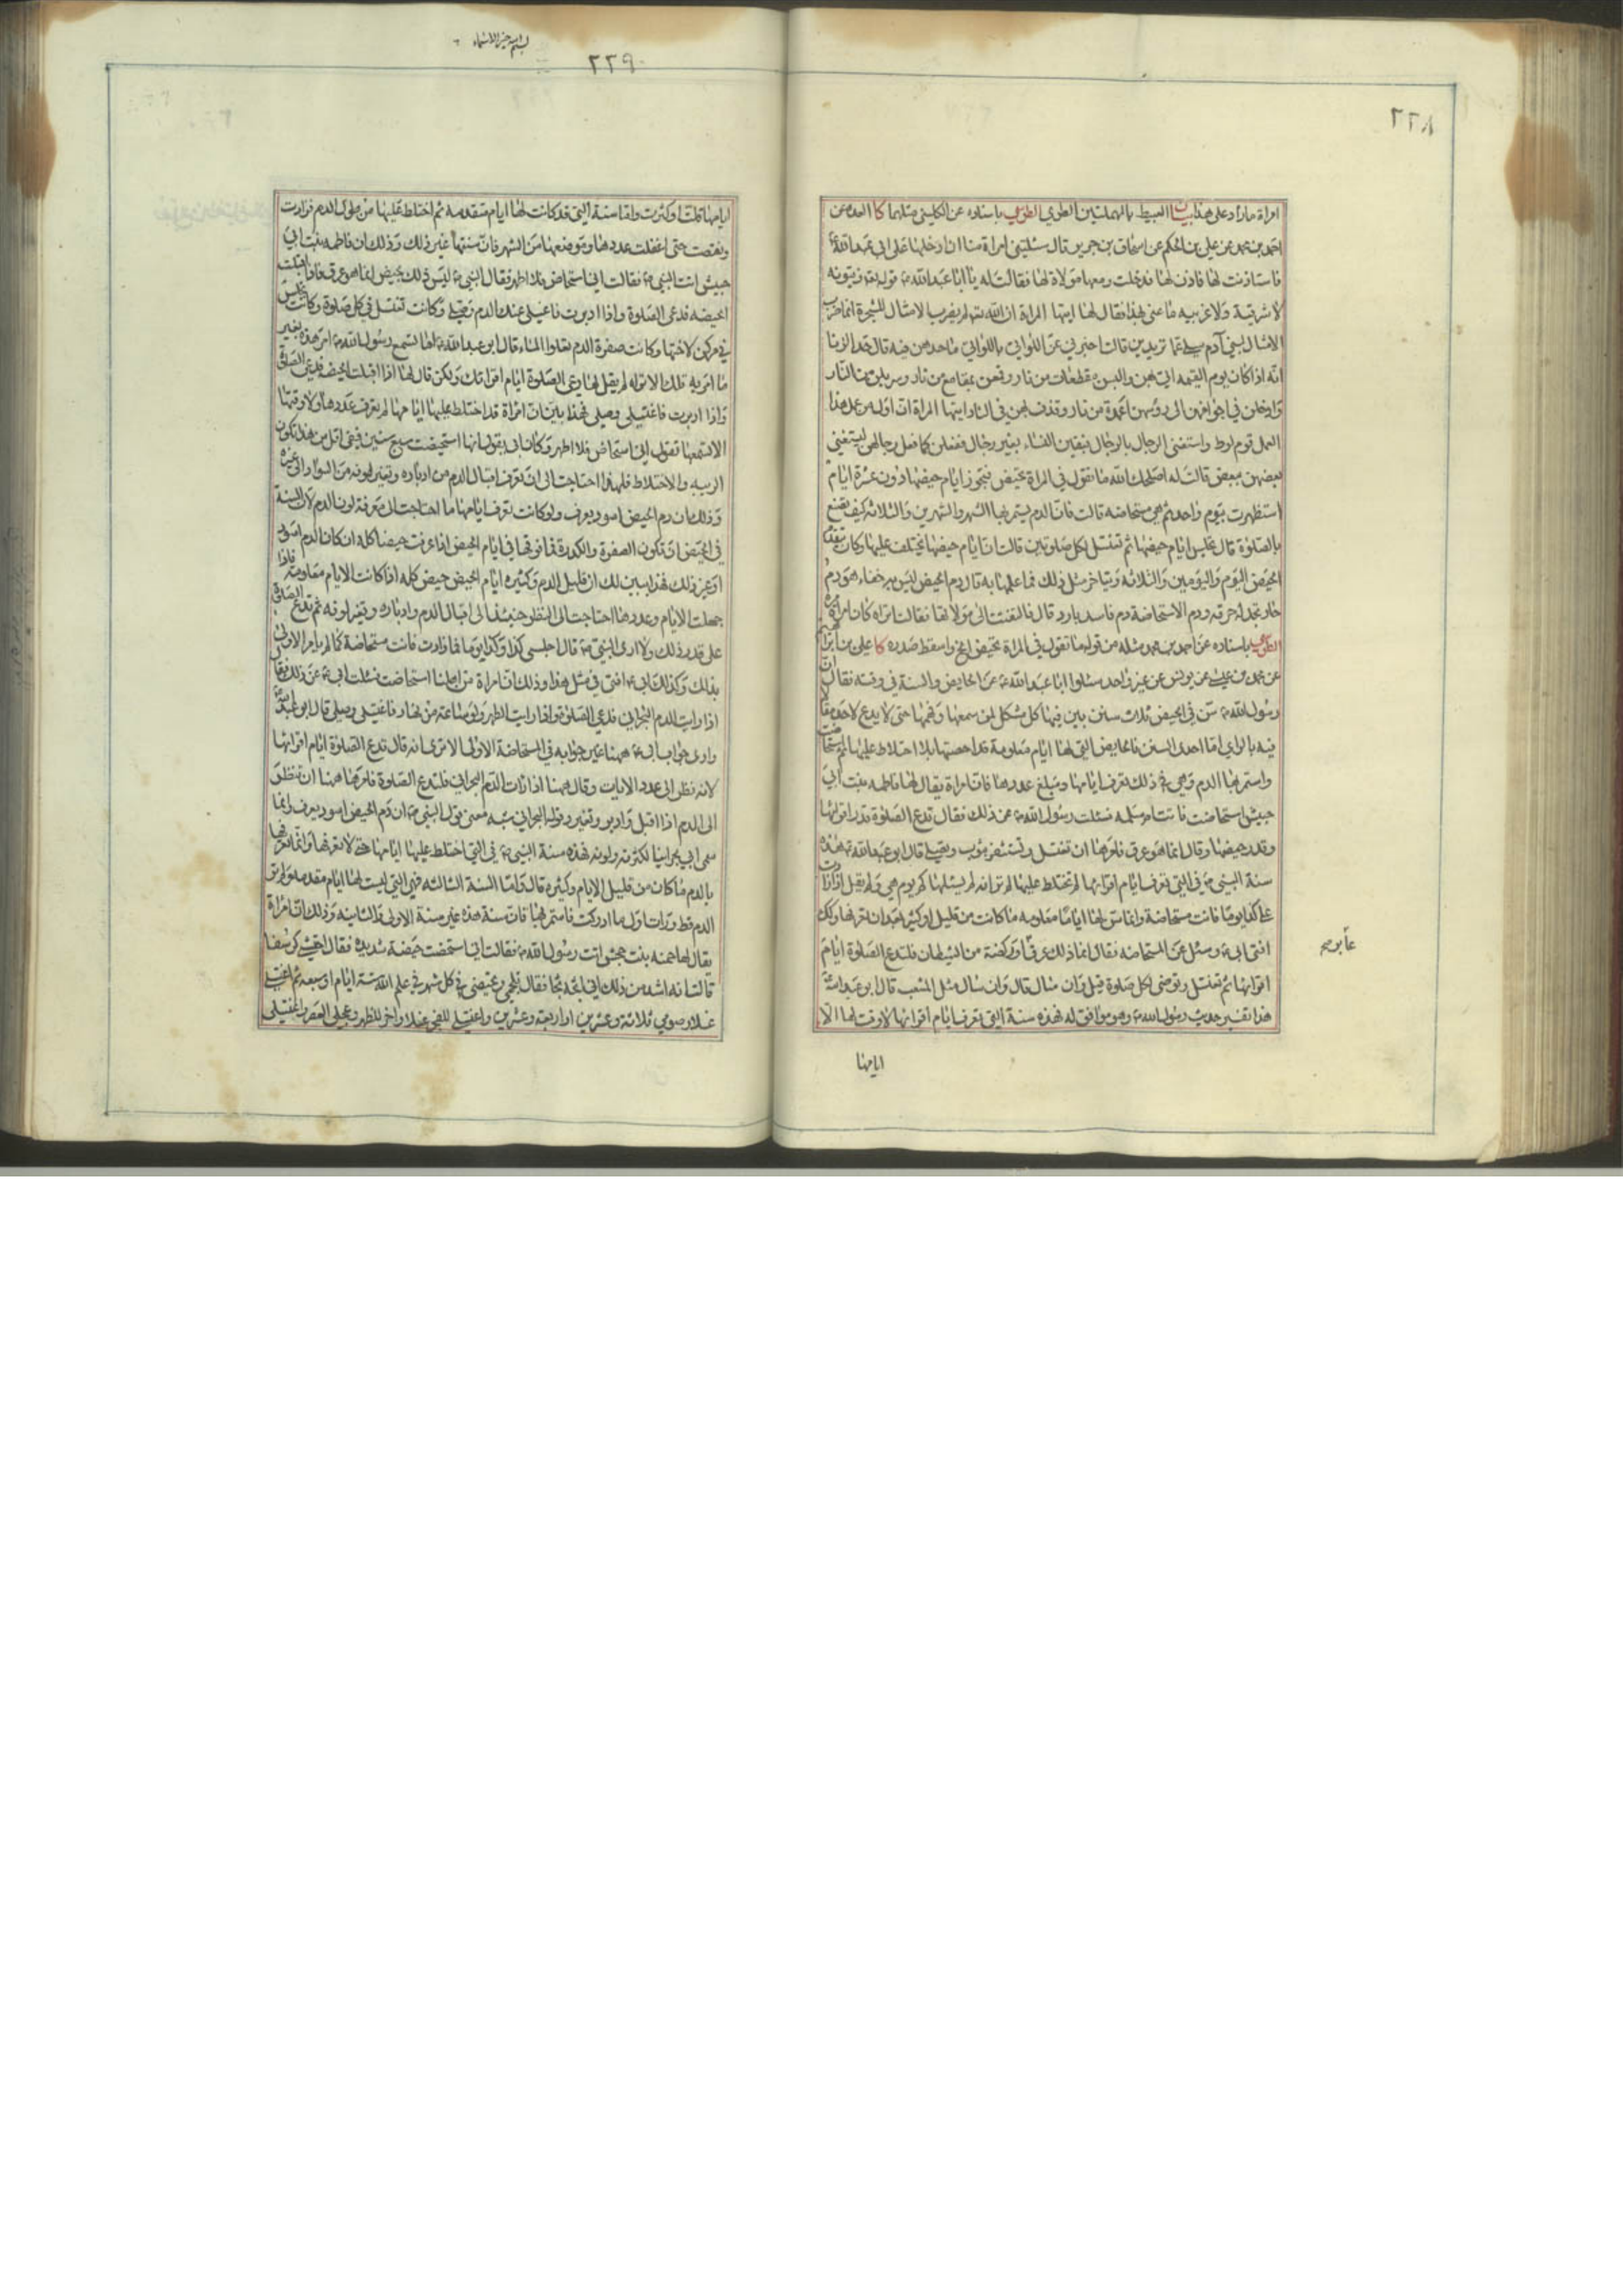 ٢٢٨
امراة مارأد على هذا بيان العبيط بالمهملتين الطري الطوسي باسناده عن الكليني مثلهما كا العدة عن
احمد بن محمد عن علي بن الحكم عن اسحاق بن جرير قال سئلتني امراة منا ان ادخلها على ابي عبد الله ع
فاستاذنت لها فاذن لها فدخلت ومعها مولاة لها فقالت له يا ابا عبد الله ع قوله تعالى زيتونه
لا شرقية ولا غربيه ما عنى بهذا فقال لها ايتها المراة ان الله تعالى لم يضرب الامثال للشجرة انما ضرب
الامثال لبني آدم سلي عما تريدين قالت اخبرني عن اللواتي باللواتي ما حدهن فيه قال حد الزنا
انه اذا كان يوم القيمه اتي بهن والبسن مقطعات من نار وقنعن بمقامع من نار وسربلن من النار
وادخل في اجوافهن الى رؤسهن اعمدة من نار وقذف بهن في النار ايتها المراة ان اول من عمل هذا
العمل قوم لوط واستغنى الرجال بالرجال فبقين النساء بغير رجال ففعلن كما فعل رجالهن ليستغني
بعضهن ببعض قالت له اصلحك الله ما تقول في المراة تحيض فتجوز ايام حيضها ان كان حيضها دون عشرة ايام
استظهرت بيوم واحد ثم هي مستحاضه قالت فان الدم يستمر بها الشهر والشهرين والثلاثه كيف تصنع
بالصلوة قال تجلس ايام حيضها ثم تغتسل لكل صلوتين قالت ان ايام حيضها تختلف عليها وكان يتقدم
الحيض اليوم واليومين والثلاثه ويتاخر مثل ذلك فما علمها به قال دم الحيض ليس به خفاء هو دم
حار تجد له حرقه ودم الاستحاضة دم فاسد بارد قال فالتفتت الى مولاتها فقالت اتراه كان امراة مره
الطوسي باسناده عن احمد بن محمد مثله من قولها ما تقول في المراة تحيض الخ واسقط صدره كا علي بن ابراهيم
عن محمد بن عيسى عن يونس عن غير واحد سئلوا ابا عبد الله ع عن الحايض والسنة في وقته فقال ان
رسول الله ص سن في الحيض ثلاث سنن بين فيها كل مشكل لمن سمعها وفهمها حتى لا يدع لاحد مقالا
فيه بالراي اما احدى السنن فالحايض التي لها ايام معلومة قد احصتها بلا اختلاط عليها ثم استحاضت
واستمر بها الدم وهي في ذلك تعرف ايامها ومبلغ عددها فان امراة يقال لها فاطمه بنت ابي
حبيش استحاضت فاتت ام سلمه فسئلت رسول الله ص عن ذلك فقال تدع الصلوة قدر اقرائها
وقدر حيضها وقال انما هو عرق فامرها ان تغتسل وتستثفر بثوب وتصلي قال ابو عبد الله ع هذه
سنة النبي ص في التي تعرف ايام اقرائها لم تختلط عليها الا ترى انه لم يسئلها كم يوم هي ولم يقل اذا زادت
على كذا يوما فانت مستحاضة وانما سن لها اياما معلومه ما كانت من قليل او كثير بعد ان تعرفها وكذلك
افتى ابي ع وسئل عن المستحاضه فقال انما ذلك عرق او ركضة من الشيطان فلتدع الصلوة ايام
اقرائها ثم تغتسل وتوضى لكل صلوة قيل وان سال قال وان سال مثل المثعب قال ابو عبد الله ع
هذا تفسير حديث رسول الله ص وهو موافق له فهذه سنة التي تعرف ايام اقرائها لا وقت لها الا
ايامها
٢٢٩
ايامها قلت او كثرت واما سنة التي قد كانت لها ايام متقدمه ثم اختلط عليها من طول الدم فزادت
ونقصت حتى اغفلت عددها وموضعها من الشهر فان سنتها غير ذلك وذلك ان فاطمه بنت ابي
حبيش اتت النبي ص فقالت اني استحاض فلا اطهر فقال النبي ص ليس ذلك بحيض انما هو عرق فاذا اقبلت
الحيضه فدعي الصلوة واذا ادبرت فاغسلي عنك الدم وصلي وكانت تغتسل في كل صلوة وكانت تجلس
في مركن لاختها وكانت صفرة الدم تعلوا الماء قال ابو عبد الله ع اما تسمع رسول الله ص امر هذه بغير
ما امر به تلك الا تراه لم يقل لها دعي الصلوة ايام اقرائك ولكن قال لها اذا اقبلت الحيضة فدعي الصلوة
واذا ادبرت فاغتسلي وصلي فهذا يبين ان امراة قد اختلط عليها ايامها لم تعرف عددها ولا وقتها
الا تسمعها تقول اني استحاض فلا اطهر وكان ابي يقول انها استحيضت سبع سنين ففي اقل من هذا تكون
الريبه والاختلاط فلهذا احتاجت الى ان تعرف اقبال الدم من ادباره وتغير لونه من السواد الى غيره
وذلك ان دم الحيض اسود يعرف ولو كانت تعرف ايامها ما احتاجت الى معرفة لون الدم لان السنة
في الحيض ان تكون الصفرة والكدرة فما فوقها في ايام الحيض اذا عرفت حيضا كله ان كان الدم اسود
او غير ذلك فهذا يبين لك ان قليل الدم وكثيره ايام الحيض حيض كله اذا كانت الايام معلومة فاذا
جهلت الايام وعددها احتاجت الى النظر حينئذ الى اقبال الدم وادباره وتغير لونه ثم تدع الصلوة
على قدر ذلك ولا ارى النبي ص قال اجلسي كذا وكذا يوما فما زادت فانت مستحاضة كما لم يامر الاولى
بذلك وكذلك ابي ع افتى في مثل هذا وذلك ان امراة من اهلنا استحاضت فسئلت ابي ع عن ذلك فقال
اذا رايت الدم البحراني فدعي الصلوة واذا رايت الطهر ولو ساعة من نهار فاغتسلي وصلي قال ابو عبد الله ع
وارى جواب ابي ع ههنا غير جوابه في المستحاضة الاولى الا ترى انه قال تدع الصلوة ايام اقرائها
لانه نظر الى عدد الايات وقال ههنا اذا رات الدم البحراني فلتدع الصلوة فامرها ههنا ان تنظر
الى الدم اذا اقبل وادبر وتغير وقوله البحراني شبه معنى قول النبي ص ان دم الحيض اسود يعرف وانما
سمى ابي بحرانيا لكثرته ولونه فهذه سنة النبي ص في التي اختلط عليها ايامها حتى لا تعرفها وانما تعرفها
بالدم ما كان من قليل الايام وكثيره قال واما السنة الثالثه فهي التي ليست لها ايام متقدمه ولم تر
الدم قط ورات اول ما ادركت فاستمر بها فان سنة هذه غير سنة الاولى والثانيه وذلك ان امراة
يقال لها حمنه بنت جحش اتت رسول الله ص فقالت اني استحضت حيضه شديدة فقال احتشي كرسفا
قالت انه اشد من ذلك اني اثجه ثجا فقال تلجمي وتحيضي في كل شهر في علم الله ستة ايام او سبعه ثم اغتسلي
غسلا وصومي ثلاثة وعشرين او اربعة وعشرين واغتسلي للفجر غسلا واخري الظهر وعجلي العصر واغتسلي